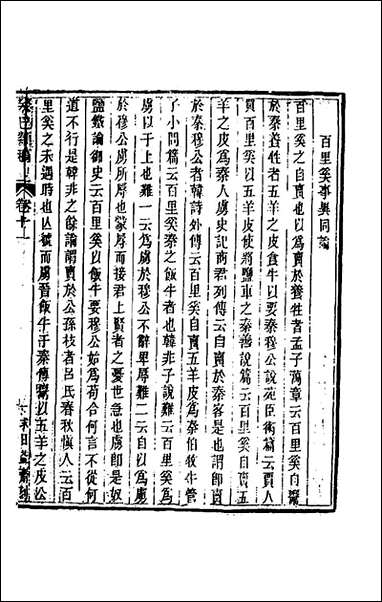 百里奚事異同論
百里奚之自賣也以爲賣於養牲者孟子萬章云百里奚自鬻
於秦養牲者五羊之皮食牛以要秦穆公說苑臣術篇云賈人
買百里奚以五羊皮使將鹽車之秦善說篇云百里奚自賣五
羊之皮爲秦人虜史記商君列傳云自賣於秦客是也謂卽賣
於秦穆公者韓詩外傳云百里奚自賣五羊皮爲秦伯牧牛管
子小問篇云百里奚秦之飯牛者也韓非子說難云百里奚爲
虜以干上也難一云爲虜於穆公不辭卑辱難二云自以爲虜
於穆公虜所辱也蒙辱而接君上賢者之憂世急也虜卽是奴
鹽鐵論御史云百里奚以飯牛要穆公始爲苟合何言不從何
道不行是韓非之餘論謂賣於公孫枝者呂氏春秋愼人云百
里奚之未遇時也亡虢而虜晉飯牛于秦傳鬻以五羊之皮公
癸巳類稿 卷十一
求日益齋刻